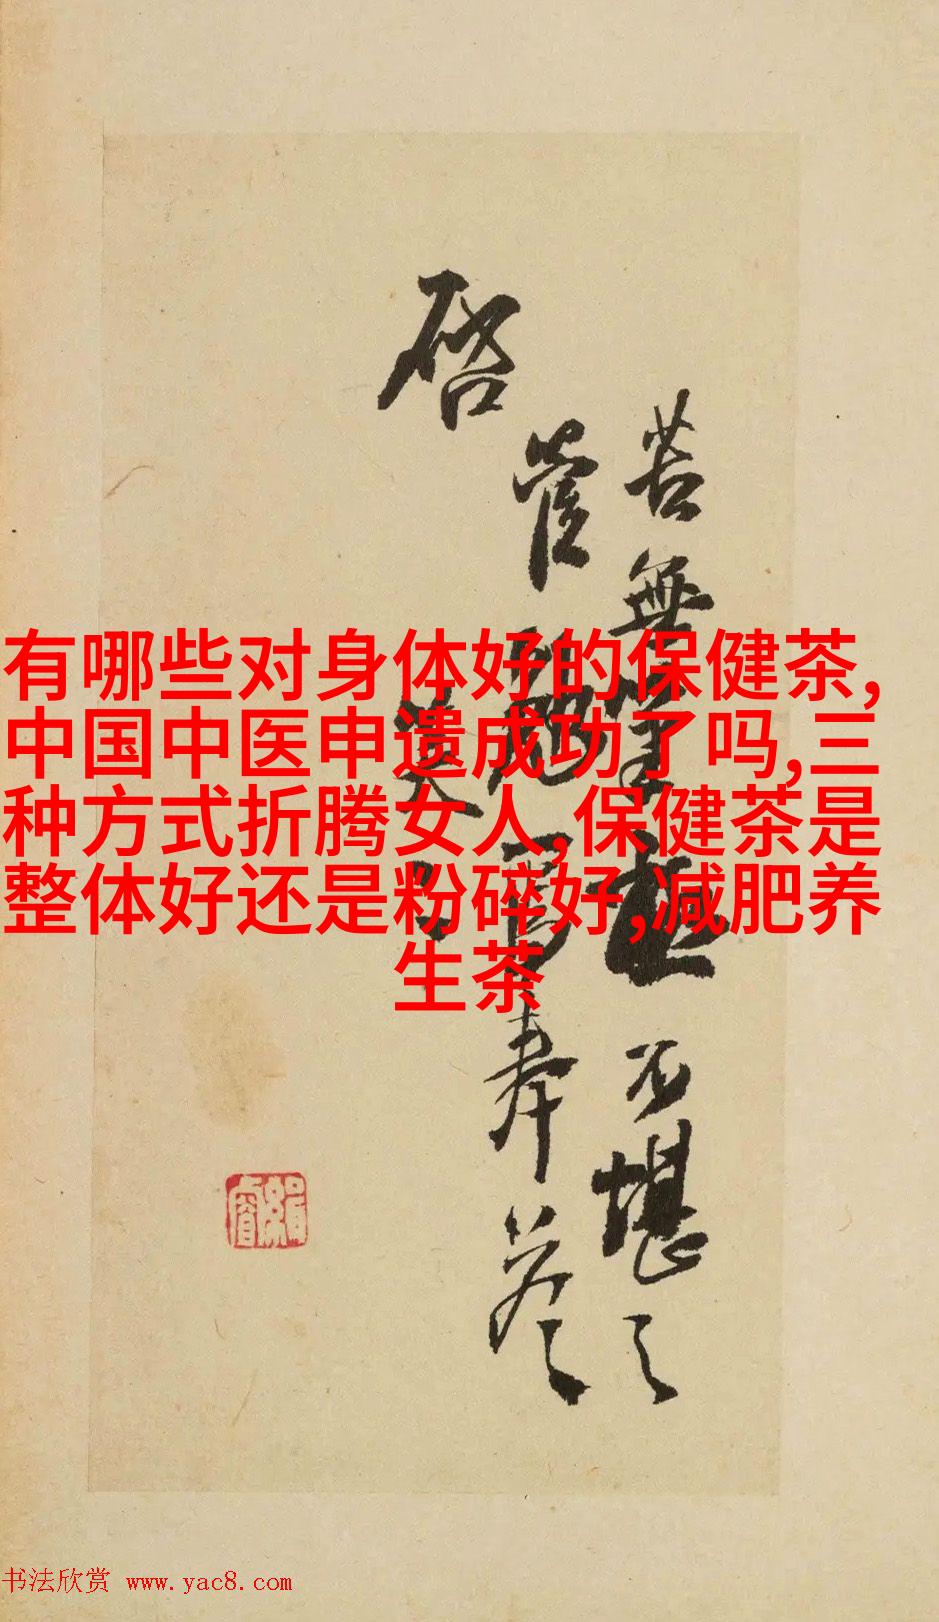 有哪些对身体好的保健茶,
中国中医申遗成功了吗,三
种方式折腾女人,保健茶是
整体好还是粉碎好,减肥养
生茶
苦無筆
不堪之
管
奉答
啓
书法欣赏 www.yac8.com